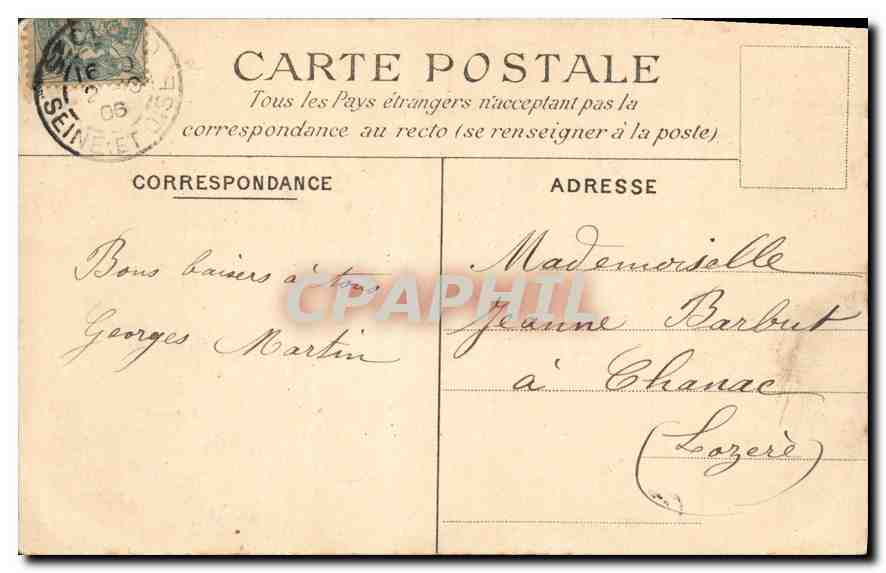 CARTE POSTALE
Tous les Pays étrangers n'acceptant pas la
correspondance au recto (se renseigner à la poste)
SEINE-ET-OISE
06
CORRESPONDANCE
Bons baisers à tous
Georges Martin
ADRESSE
Mademoiselle
Jeanne Barbut
à Chanac
(Lozère)
CPAPHIL